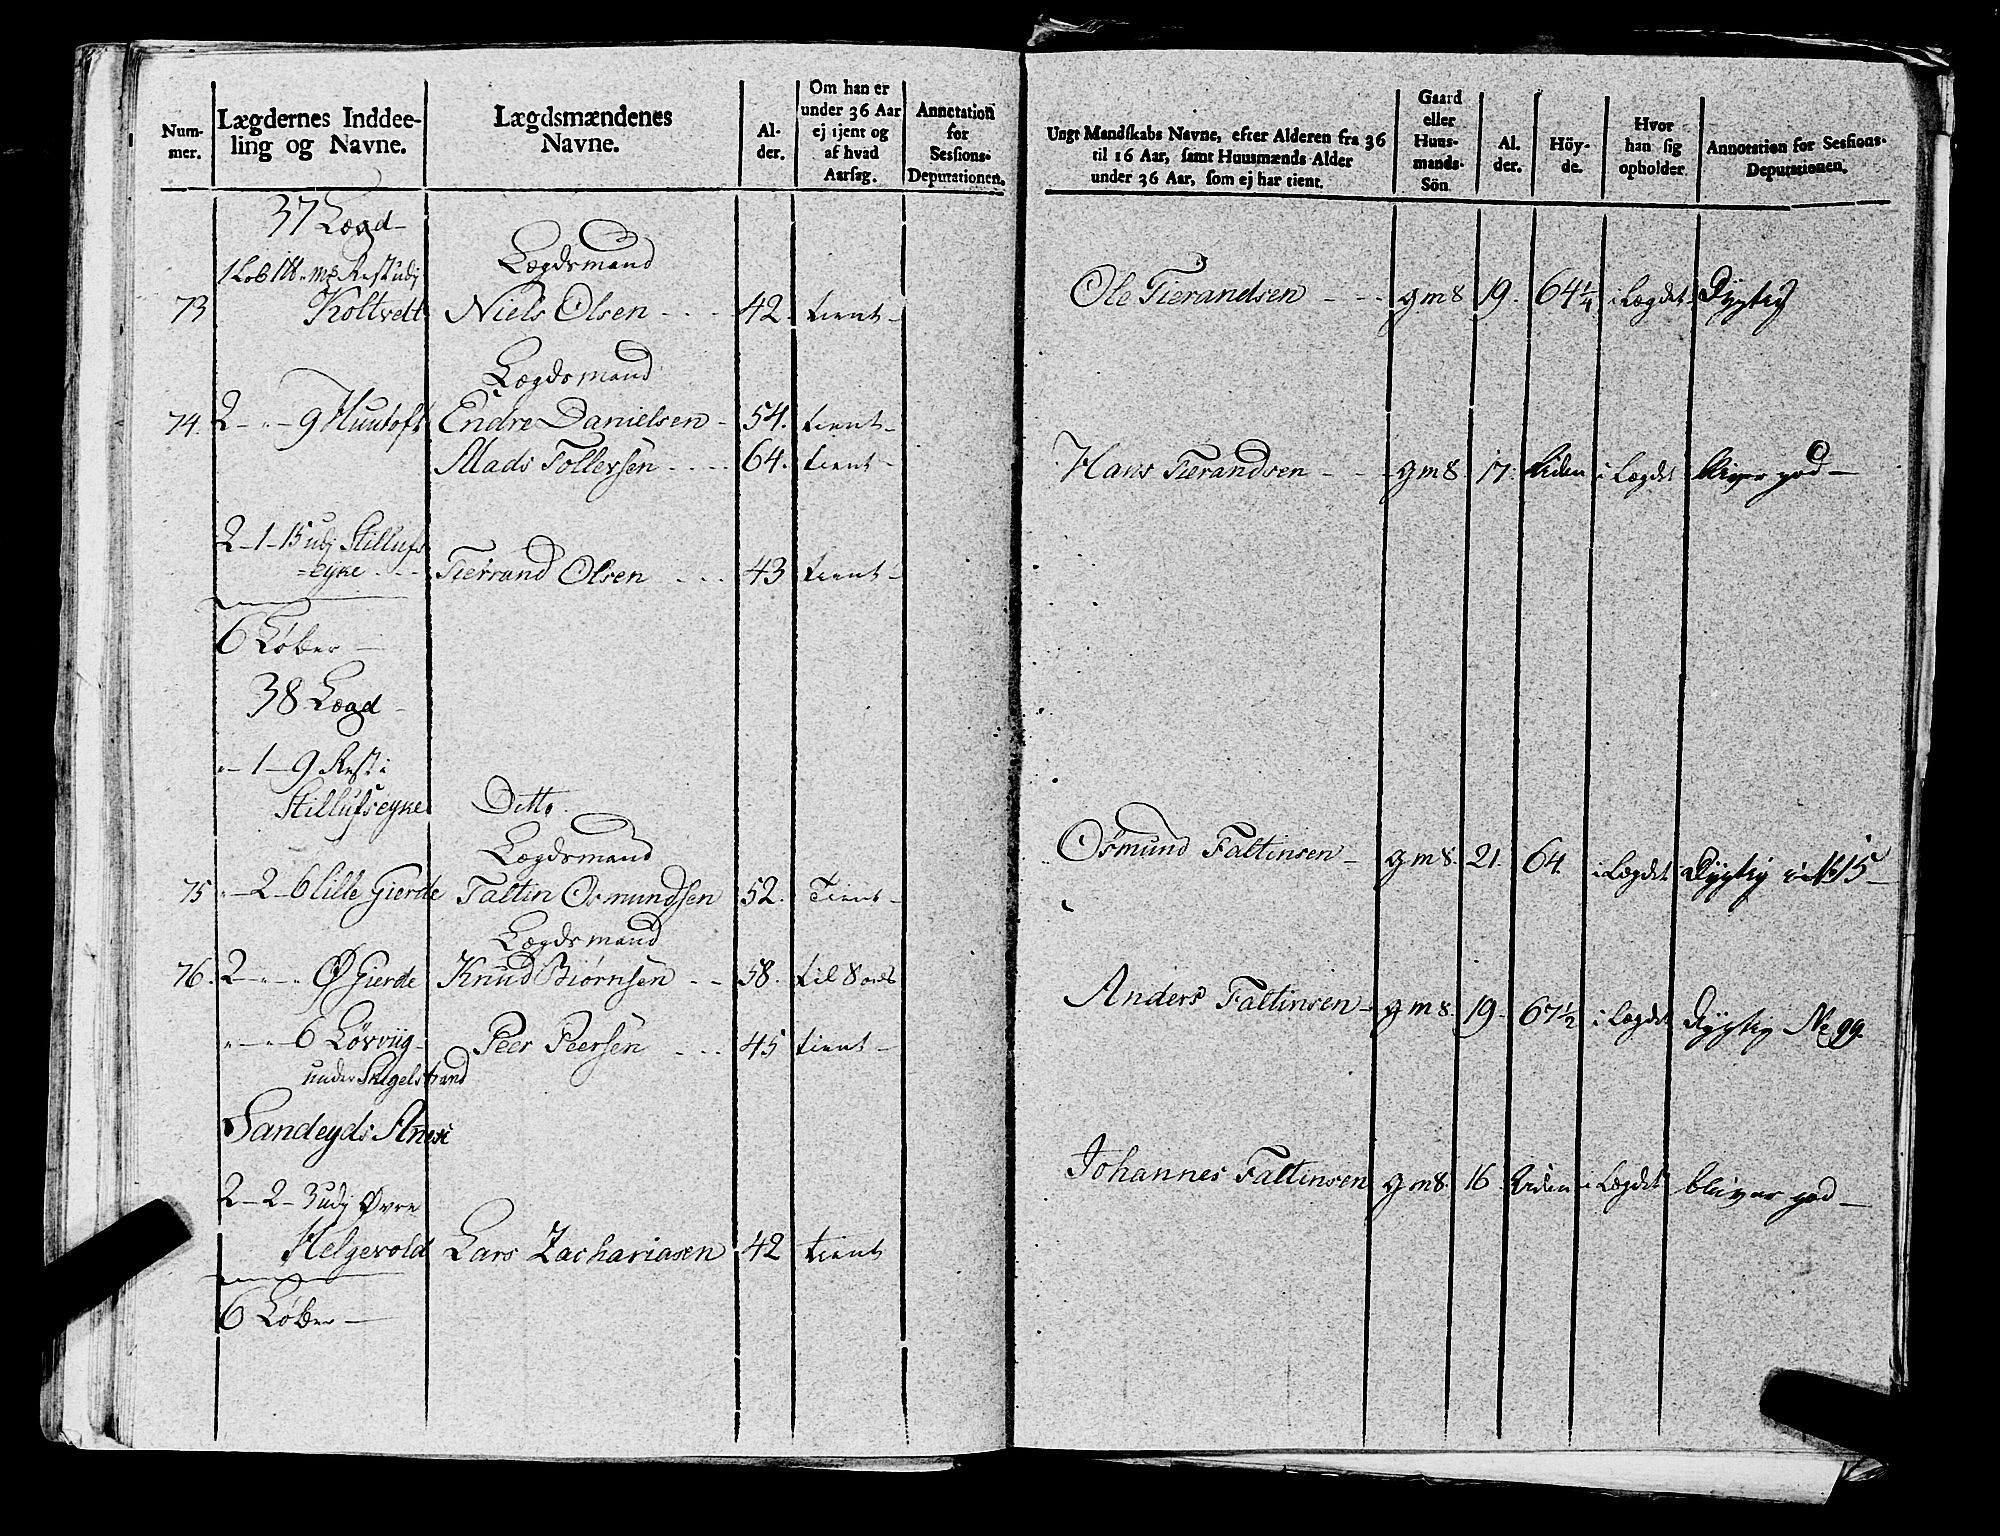 Num-
mer.
Lægdernes Inddee-
ling og Navne.
Lægdsmændenes
Navne.
Al-
der.
Om han er
under 36 Aar
ej tjent og
af hvad
Aarsag.
Annotation
for
Sessions-
Deputationen.
37 Lægd
Lægdsmand
73 Koltvett Niels Olsen 42. tient
Lægdsmand
74. 2 - " - 9 Huutoft Endre Danielsen 54. tient
Mads Tollersen 64. tient
2 - 1 - 15 udj Stillufs
=eyke Tierrand Olsen 43 tient
6 Løber
38 Lægd
" - 1 - 9 Rest i
Stillufseyke Ditto
Lægdsmand
75 " - 2 - 6 Lille Gierde Faltin Osmundsen 52. Tient
Lægdsmand
76. 2 - " - " Ø Gierde Knud Biørnsen 58. til Søes
" - " - 6 Løvviig Peer Peersen 45 tient
under Skigelstrand
Sandeyds
2 - 2 - 3 udj Øvre
Helgevold Lars Zachariasen 42 tient
6 Løber
Ungt Mandskabs Navne, efter Alderen fra 36
til 16 Aar, samt Huusmænds Alder
under 36 Aar, som ej har tient.
Gaard
eller
Huus-
mands-
Sön.
Al.
der.
Höy-
de.
Hvor
han sig
opholder.
Annotation for Sessions-
Deputationen.
Ole Tierandsen g m s 19. 64 1/4 i Lægdet Dygtig
Hans Tierandsen g m s 17. Liden i Lægdet bliver god
Osmund Faltinsen g m s. 21. 64. i Lægdet Dygtig
Anders Faltinsen g m s. 19. 67 1/2 i Lægdet Dygtig No 99.
Johannes Faltinsen g m s. 16 Liden i Lægdet bliver god